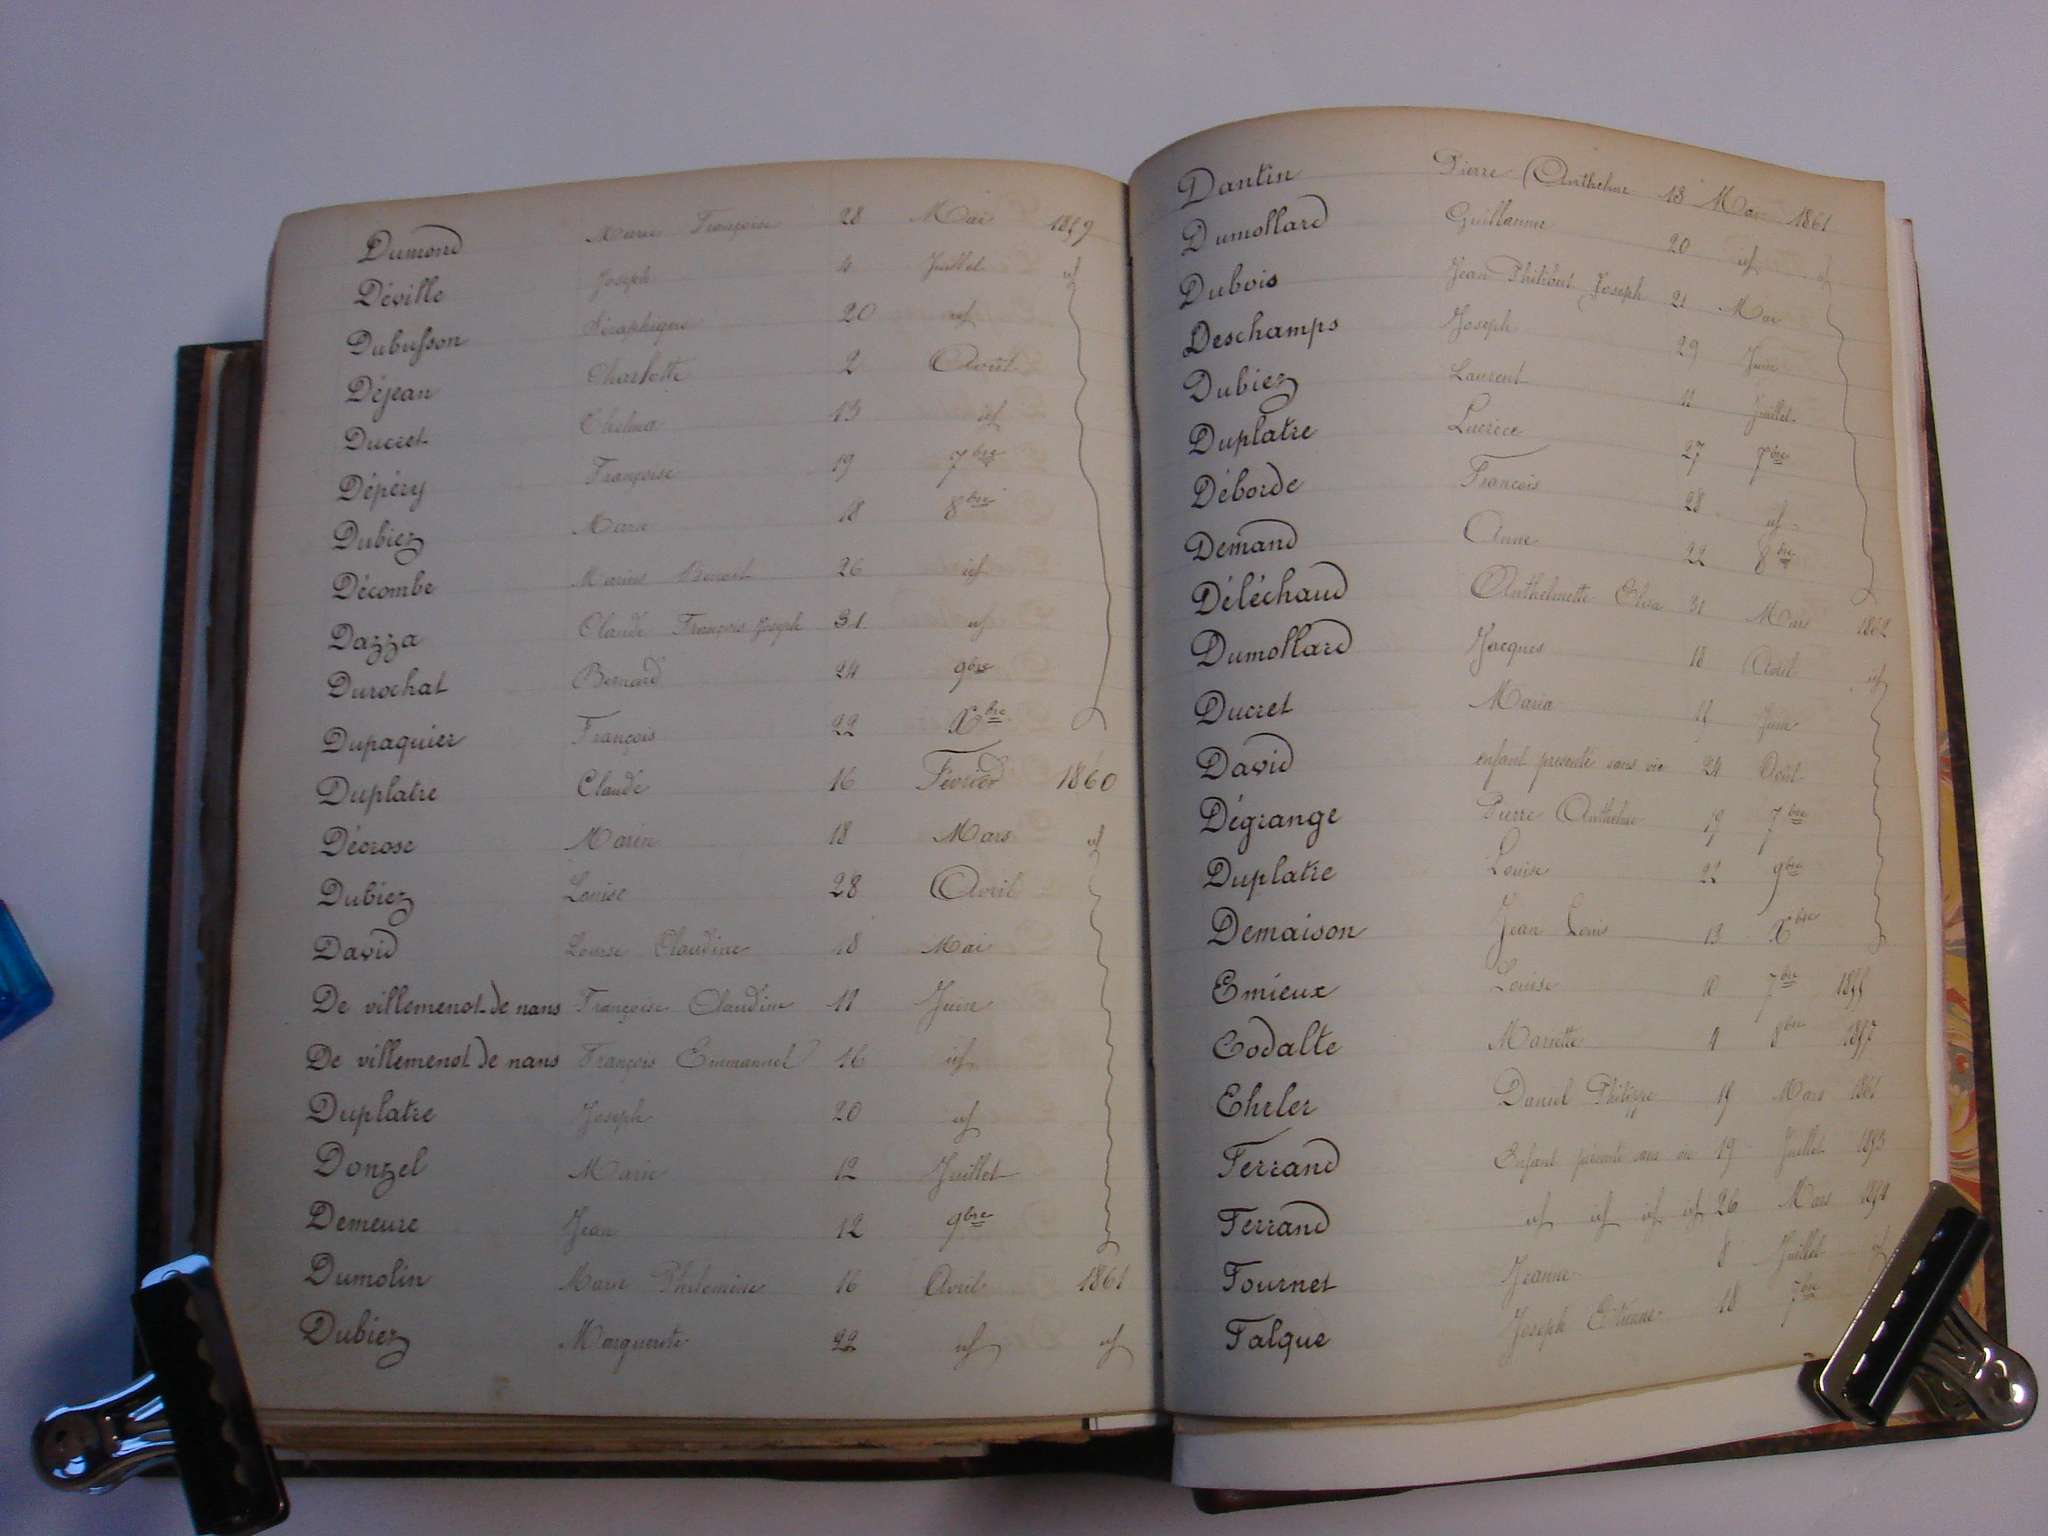 Dumond Marie Françoise 28 Mai 1859
Déville Joseph 4 Juillet id
Dubusson 20 id
Déjean Charlotte 2 Août
Ducret 13 id
Dépéry Françoise 19 7bre
Dubiez Marie 18 8bre
Décombe Marius Benoit 26 id
Dazza Claude François Joseph 31 id
Durochat Bernard 24 9bre
Dupaquier François 22 Xbre
Duplatre Claude 16 Février 1860
Décrose Marin 18 Mars id
Dubiez Louise 28 Avril
David Louise Claudine 18 Mai
De villemenot de nans Françoise Claudine 11 Juin
De villemenot de nans François Emmanuel 16 id
Duplatre Joseph 20 id
Donzel Marie 12 Juillet
Demeure Jean 12 9bre
Dumolin Marie Philomine 16 Avril 1861
Dubiez Marguerite 22 id id
Dantin Pierre Anthelme 13 Mai 1861
Dumollard Guillaume 20 id id
Dubois Jean Philibert Joseph 21 Mai
Deschamps Joseph 29 Juin
Dubiez Laurent 11 Juillet
Duplatre Lucrèce 27 7bre
Déborde François 28 id
Demand Anne 22 8bre
Déléchaud Anthelmette Elisa 31 Mars 1862
Dumollard Jacques 18 Avril id
Ducret Maria 17 Juin
David enfant présenté sans vie 24 Août
Dégrange Pierre Anthelme 19 7bre
Duplatre Louise 22 9bre
Demaison Jean Louis 13 Xbre
Emieux Louise 10 7bre 1855
Eodalte Mariette 1 8bre 1857
Ehrler Daniel Philippe 19 Mars 1861
Ferrand Enfant présenté sans vie 19 Juillet 1853
Ferrand id id id id 26 Mars 1854
Fournet Jeanne 8 Juillet id
Falque Joseph Etienne 18 7bre